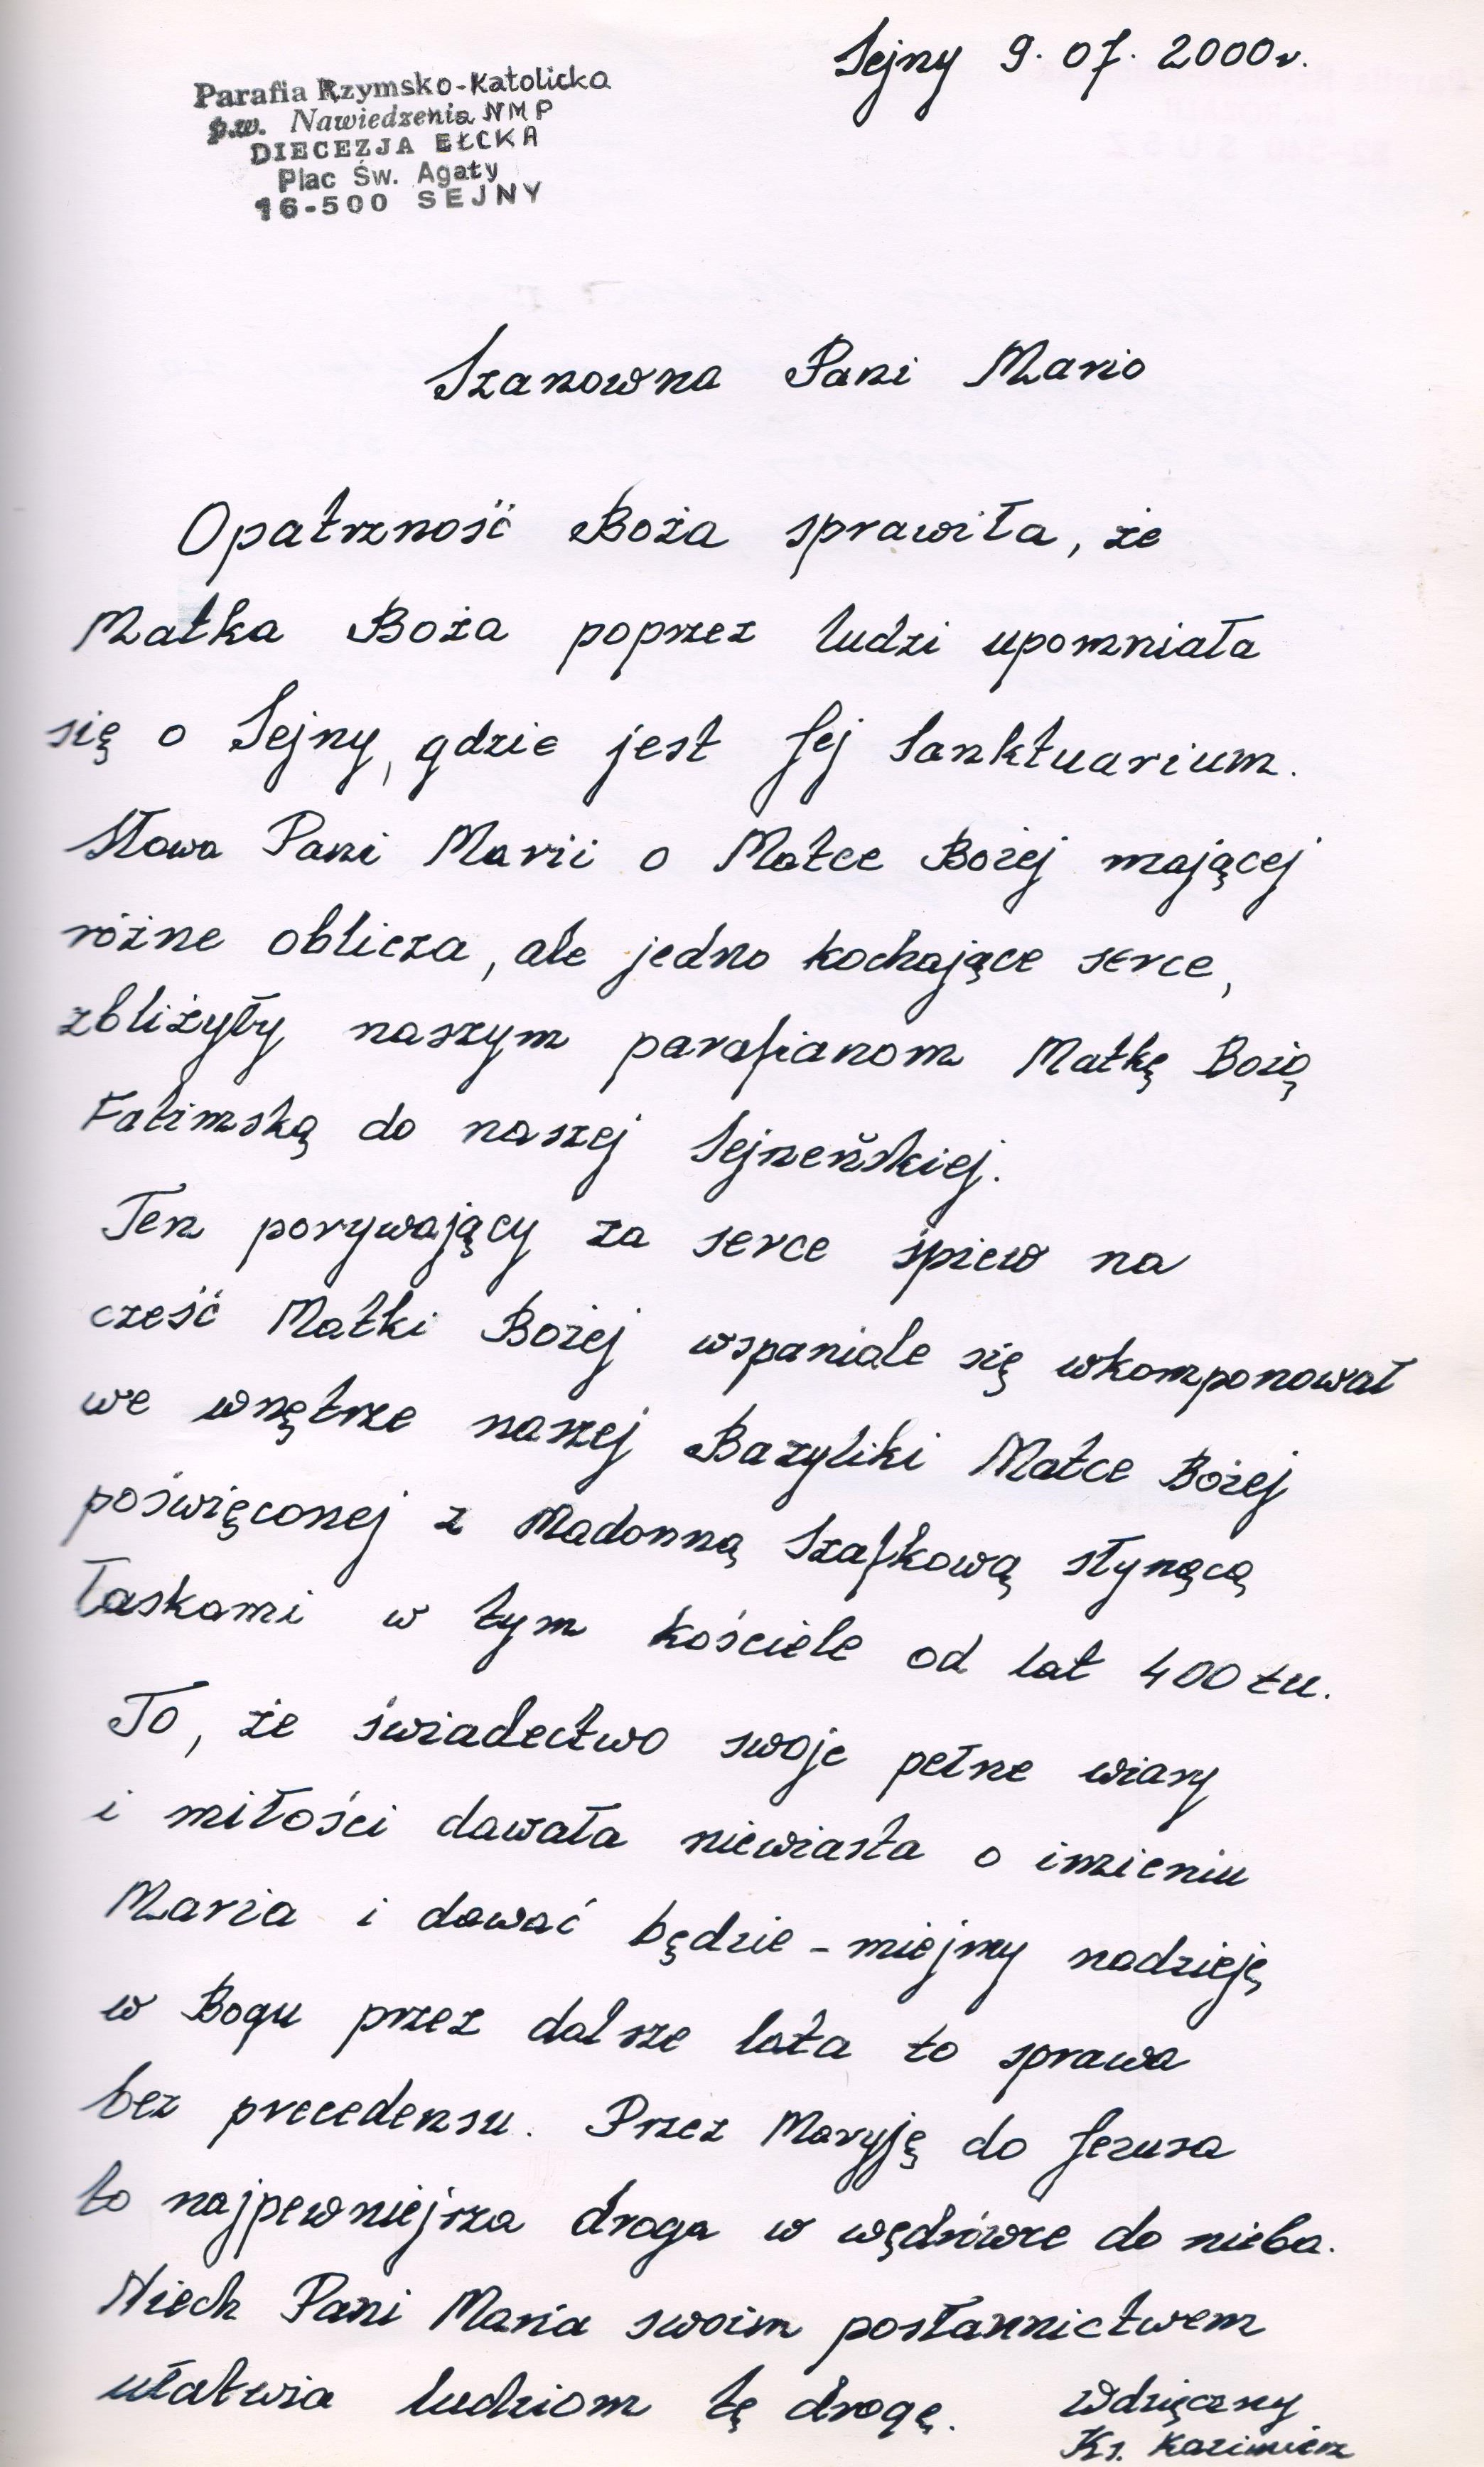 Sejny 9.07.2000r.
Parafia Rzymsko-Katolicka
p.w. Nawiedzenia NMP
DIECEZJA EŁCKA
Plac Św. Agaty
16-500 SEJNY
Szanowna Pani Mario
Opatrzność Boża sprawiła, że
Matka Boża poprzez ludzi upomniała
się o Sejny, gdzie jest Jej Sanktuarium.
Słowa Pani Marii o Matce Bożej mającej
różne oblicza, ale jedno kochające serce,
zbliżyły naszym parafianom Matkę Bożą
Fatimską do naszej Sejneńskiej.
Ten porywający za serce śpiew na
cześć Matki Bożej wspaniale się wkomponował
we wnętrze naszej Bazyliki Matce Bożej
poświęconej z Madonną Szafkową słynącą
łaskami w tym kościele od lat 400tu.
To, że świadectwo swoje pełne wiary
i miłości dawała niewiasta o imieniu
Maria i dawać będzie - miejmy nadzieję
w Bogu przez dalsze lata to sprawa
bez precedensu. Przez Maryję do Jezusa
to najpewniejsza droga w wędrówce do nieba.
Niech Pani Maria swoim posłannictwem
ułatwia ludziom tę drogę. Wdzięczny
Ks. Kazimierz